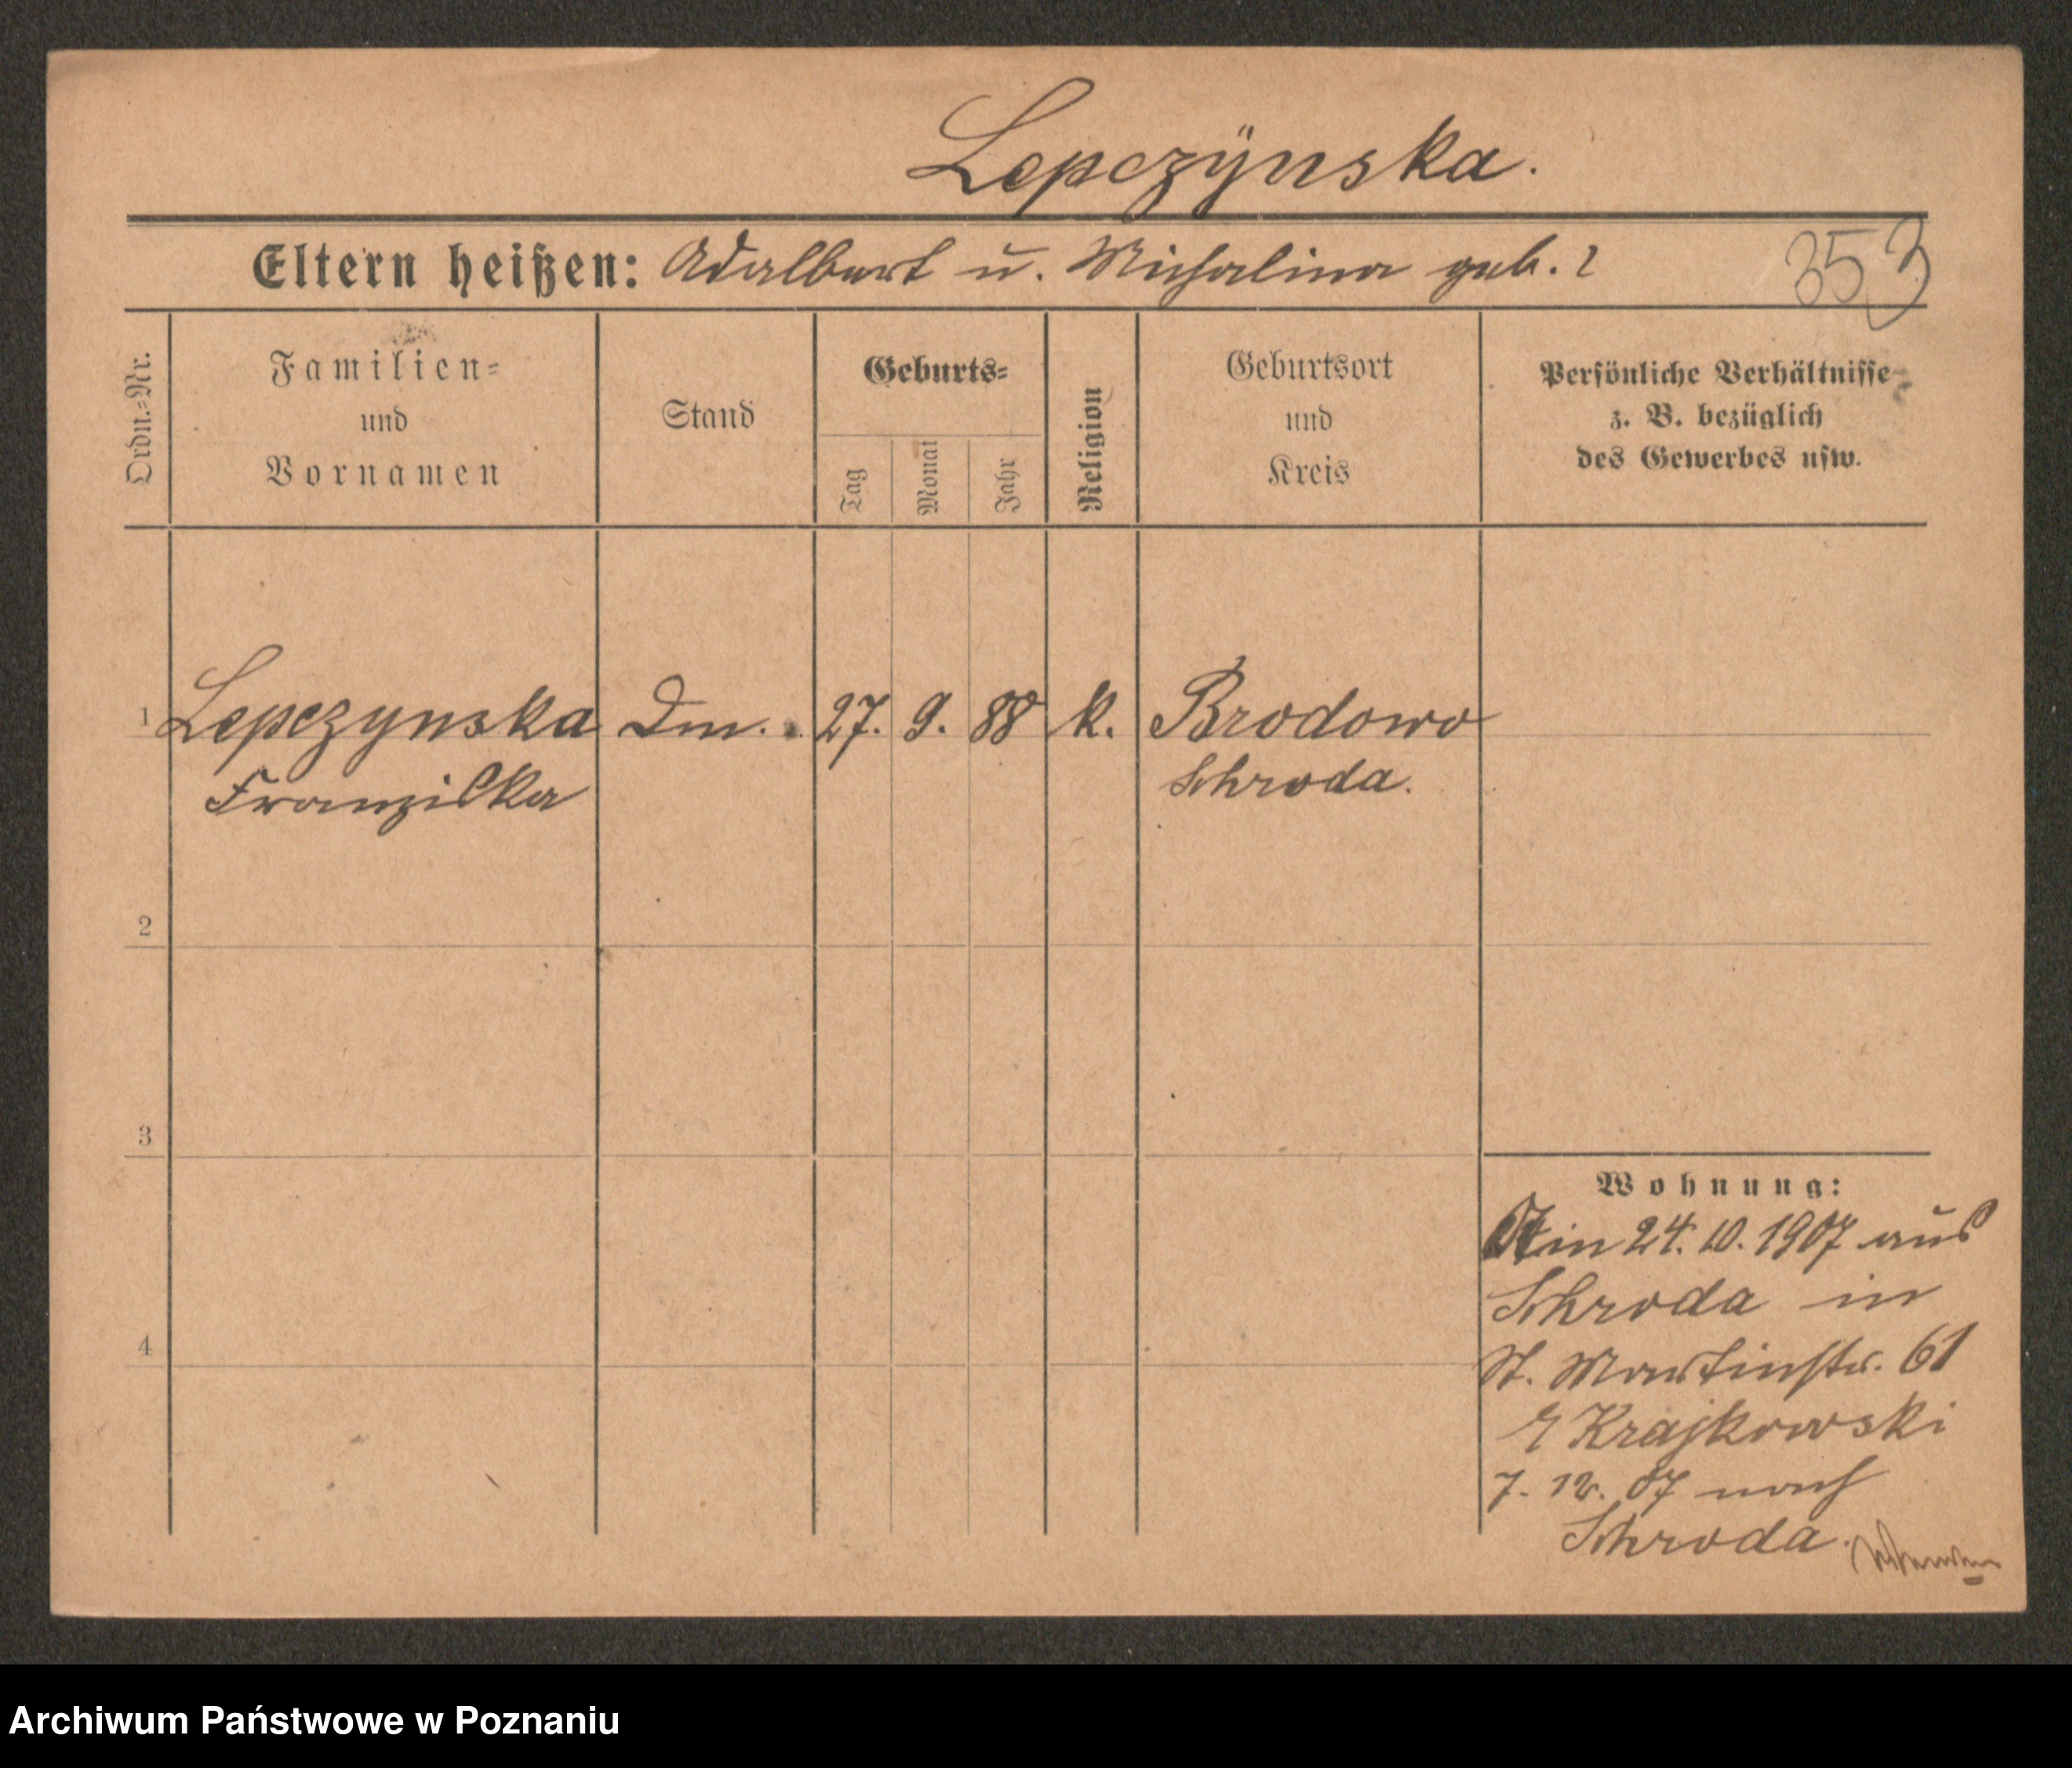 Lepczÿnska.
Eltern heißen: Adalbert u. Michalina geb. ?
353
Ordn.=Nr.
Familien=
und
Vornamen
Stand
Geburts=
Tag
Monat
Jahr
Religion
Geburtsort
und
Kreis
Persönliche Verhältnisse
z. B. bezüglich
des Gewerbes usw.
1 Lepczynska Dm. 27. 9. 88 k. Brodowo
Franziska Schroda.
2
3
4
Wohnung:
24. 10. 1907 aus
Schroda in
St. Martinstr. 61
Krajkowski
7. 12. 07 nach
Schroda.
Archiwum Państwowe w Poznaniu